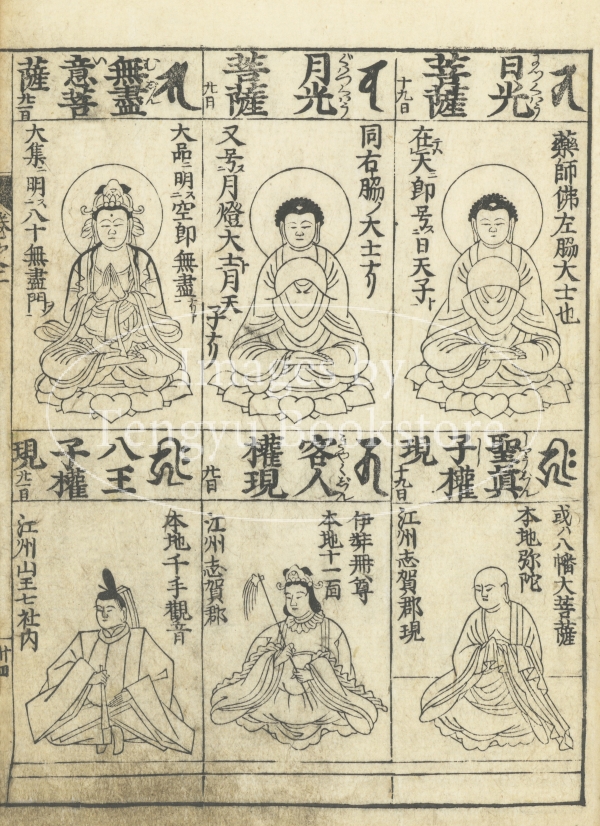 日光
菩薩
十九日
藥師佛左脇大士也
在天ニ即号ス日天子ト
月光
菩薩
廿日
同右脇ノ大士ナリ
又号ス月燈大士ト月天
子ナリ
無盡
意菩
薩廿一日
大品ニ明ス空即無盡
大集ニ明ス八十無盡門ヲ
聖眞
子權
現十九日
或ハ八幡大菩薩
本地弥陀
江州志賀郡現
客人
權現
廿日
伊弉冊尊
本地十一面
江州志賀郡
八王
子權
現廿一日
本地千手觀音
江州山王七社内
廿四
Images by
Tengyu Bookstore